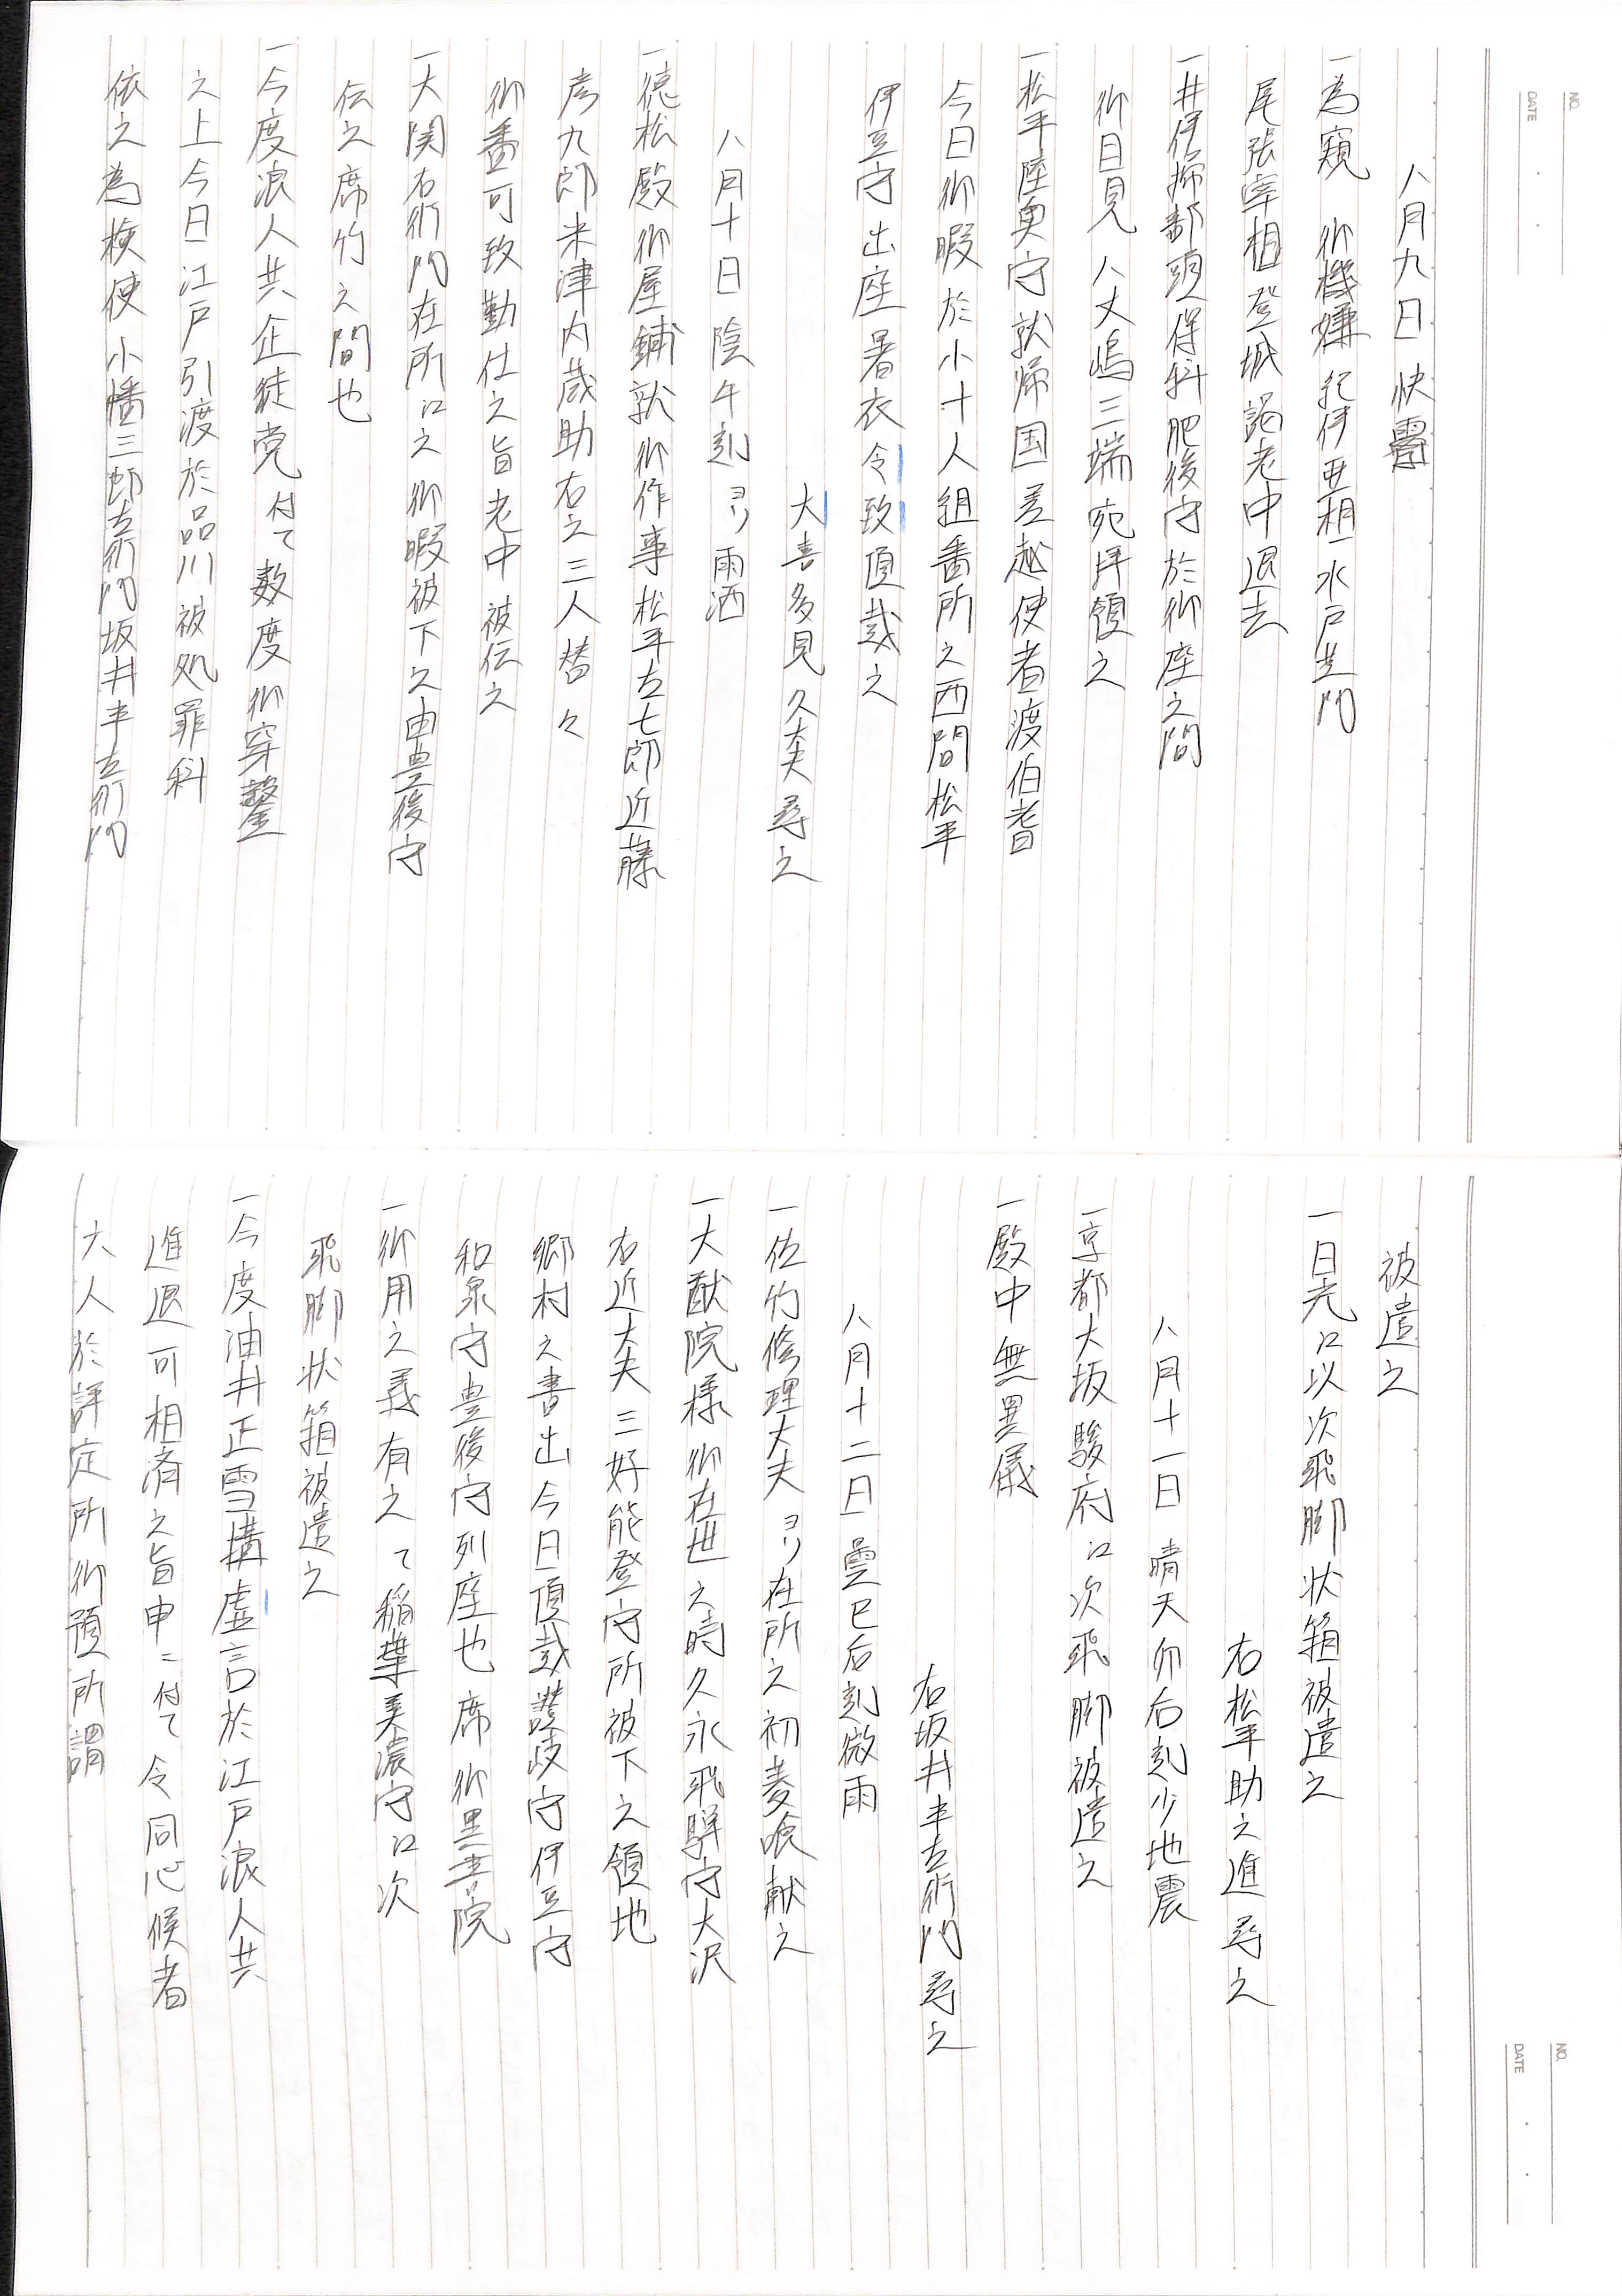 八月九日 快霽
一為窺 御機嫌 紀伊亜相 水戸黄門
尾張宰相登城謁老中退去
一井伊掃部頭保科肥後守於御座之間
御目見 八丈嶋三端宛拝領之
一松平陸奥守就帰国差越使者渡伯耆
今日御暇於小十人組番所之西間松平
伊豆守出座暑衣令致頂戴之
大喜多見久太夫尋之
八月十日 陰午刻ヨリ雨洒
一徳松殿御屋鋪就御作事松平左七郎近藤
彦九郎米津内蔵助右之三人替々
御番可致勤仕之旨老中被伝之
一大関右衛門在所江之御暇被下之由豊後守
伝之席竹之間也
一今度浪人共企徒党付て数度御穿鑿
之上今日江戸引渡於品川被処罪科
依之為検使小幡三郎左衛門坂井半左衛門
被遣之
一日光江以次飛脚状箱被遣之
右松平助之進尋之
八月十一日 晴天卯后刻少地震
一京都大坂駿府江次飛脚被遣之
一殿中無異儀
右坂井半左衛門尋之
八月十二日 曇巳后刻微雨
一佐竹修理大夫ヨリ在所之初菱喰献之
一大猷院様御在世之時久永飛騨守大沢
右近大夫三好能登守所被下之領地
郷村之書出今日頂戴讃岐守伊豆守
和泉守豊後守列座也席御黒書院
一御用之義有之て稲葉美濃守江次
飛脚状箱被遣之
一今度油井正雪構虚言於江戸浪人共
進退可相済之旨申ニ付て令同心候者
六人於評定所御預所謂
NO.
DATE ・ ・
NO.
DATE ・ ・